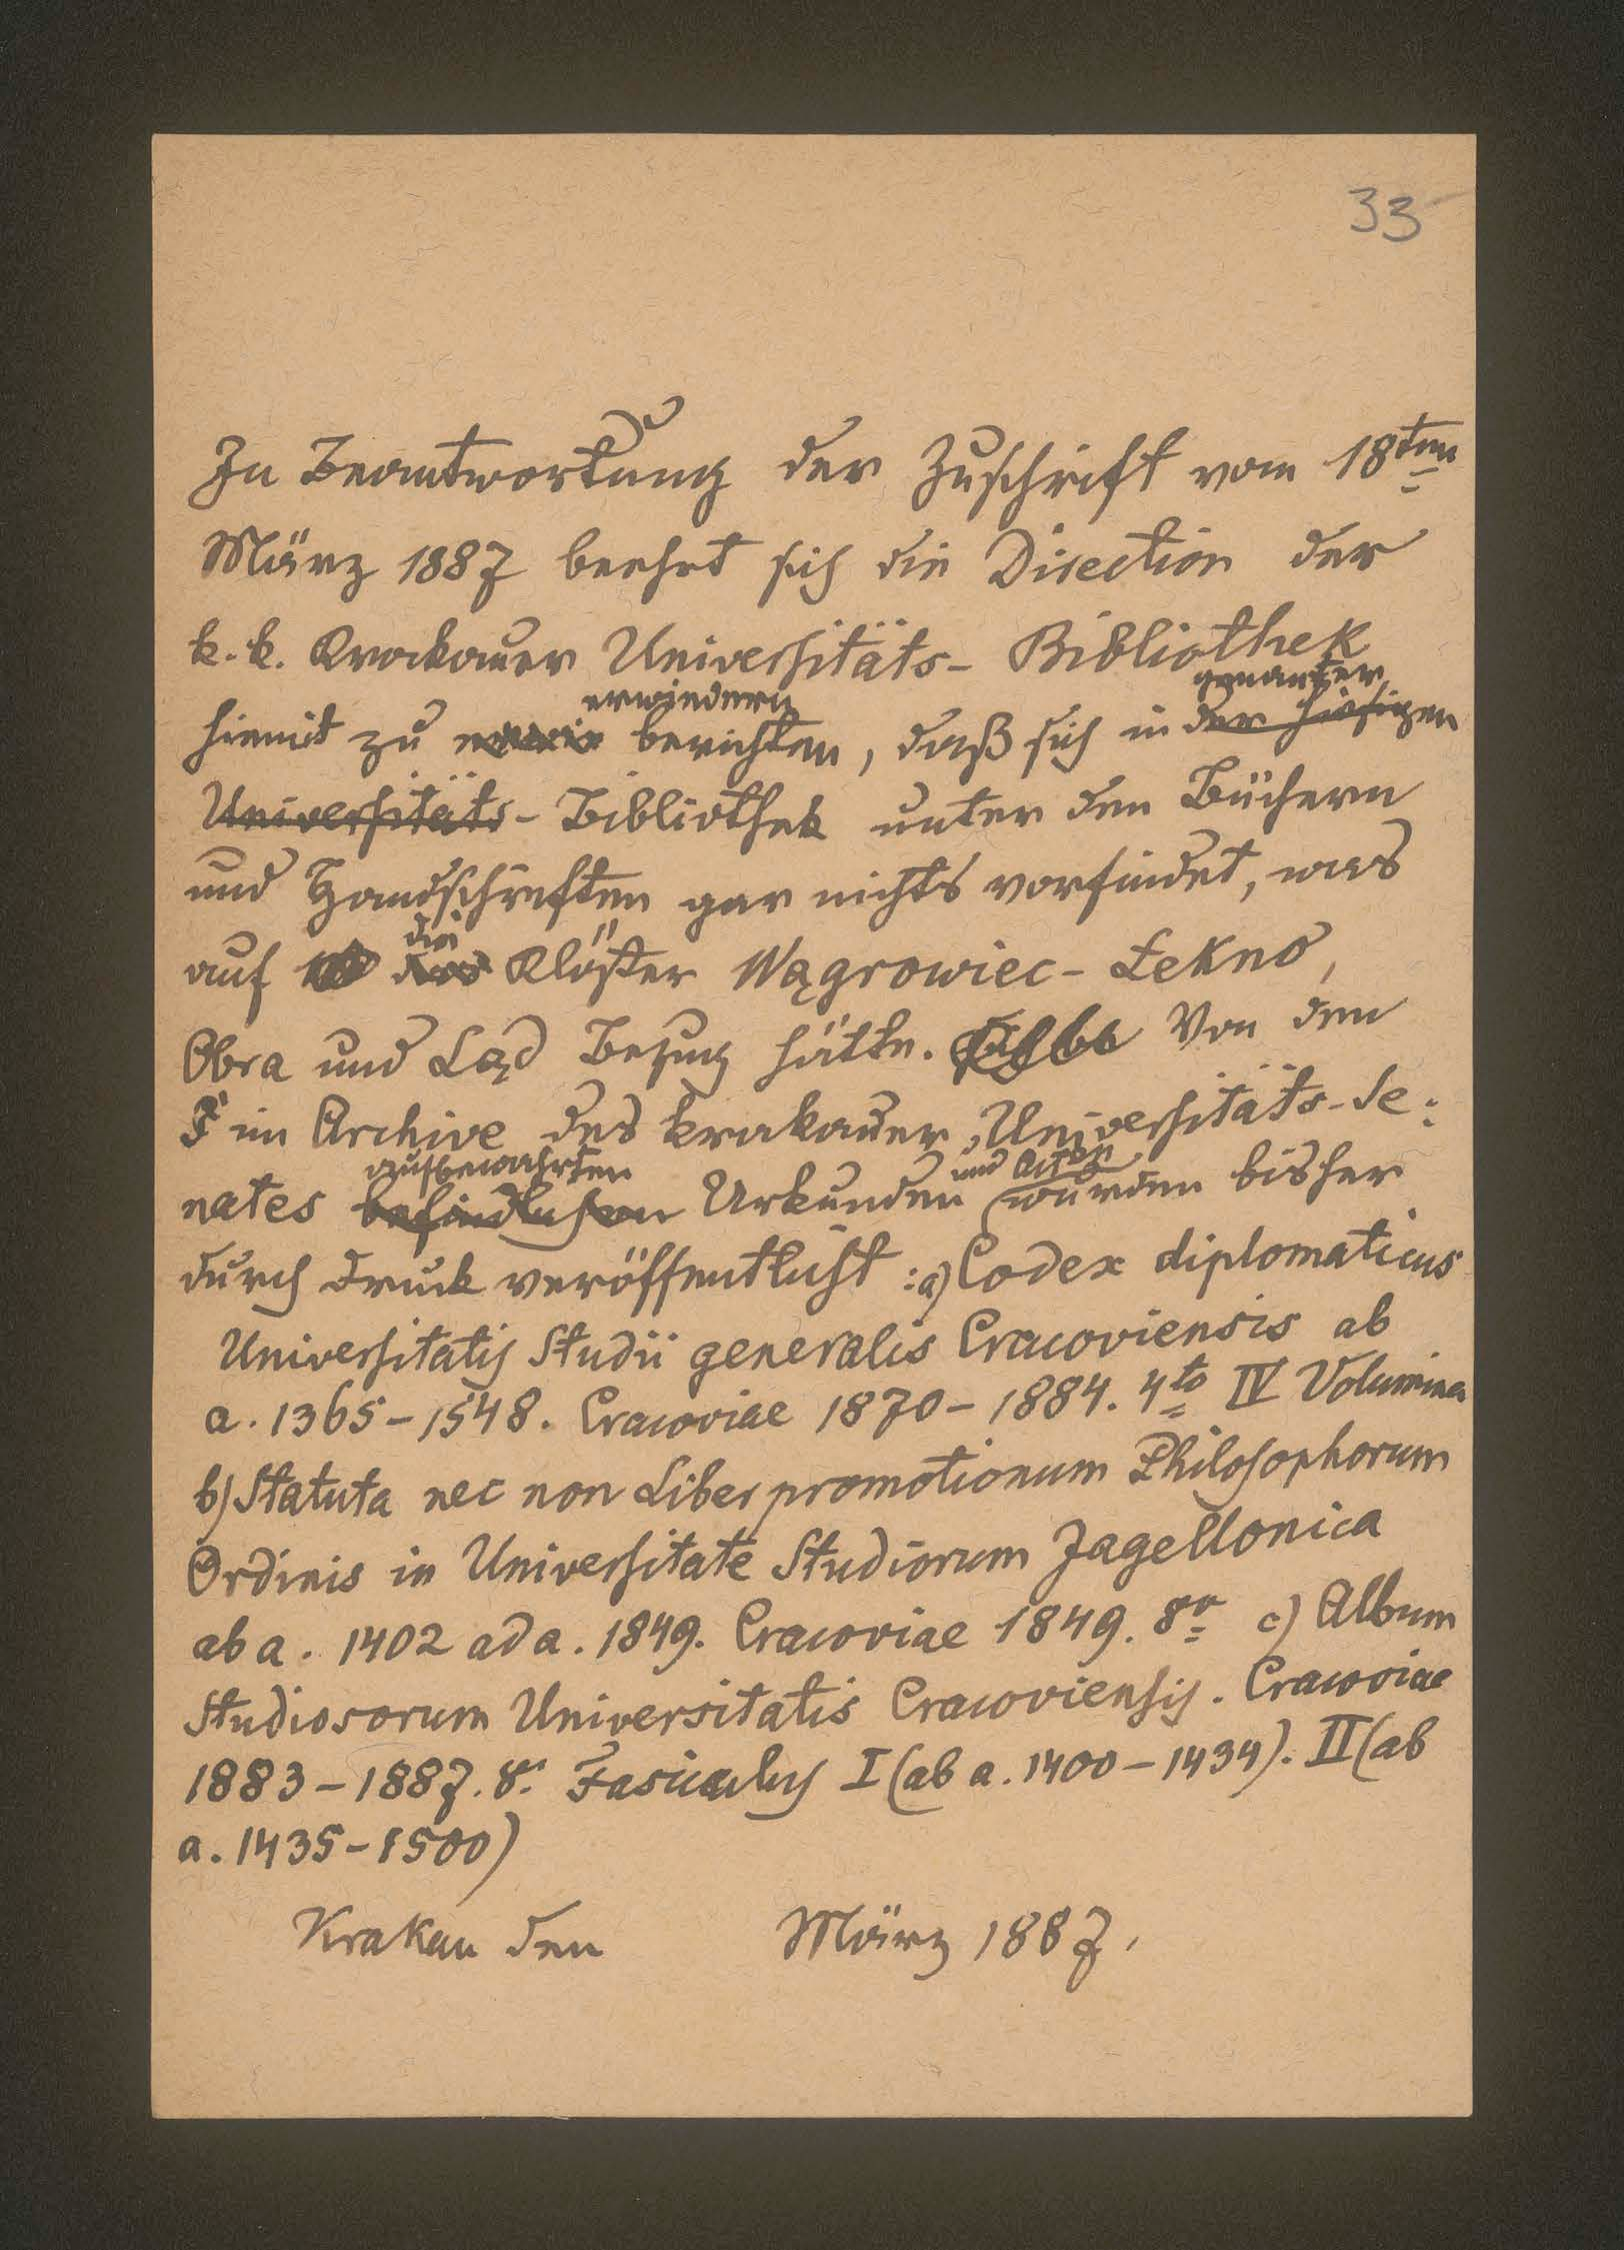 33
In Beantwortung der Zuschrift vom 18ten
März 1887 beehrt sich die Direction der
k. k. Krakauer Universitäts- Bibliothek
erwiedern genanter
hiemit zu berichten, daß sich in der hiesigen
Universitäts- Bibliothek unter den Büchern
und Handschriften gar nichts vorfindet, was
die
auf das Klöster Wągrowiec - Łekno,
Obra und Ląd Bezug hätte. Von den
im Archive des krakauer Universitäts-Se:
aufbewahrten und Acten
nates befindlichen Urkunden wurden bisher
durch Druck veröffentlicht : a) Codex diplomaticus
Universitatis Studii generalis Cracoviensis ab
a. 1365 - 1548. Cracoviae 1870 - 1884. 4to IV Volumina
b) Statuta nec non Liber promotionum Philosophorum
Ordinis in Universitate Studiorum Jagellonica
ab a. 1402 ad a. 1849. Cracoviae 1849. 8vo c) Album
Studiosorum Universitatis Cracoviensis. Cracoviae
1883 - 1887. 8o Fasciculus I (ab a. 1400 - 1434). II (ab
a. 1435 - 1500)
Krakau den März 1887.